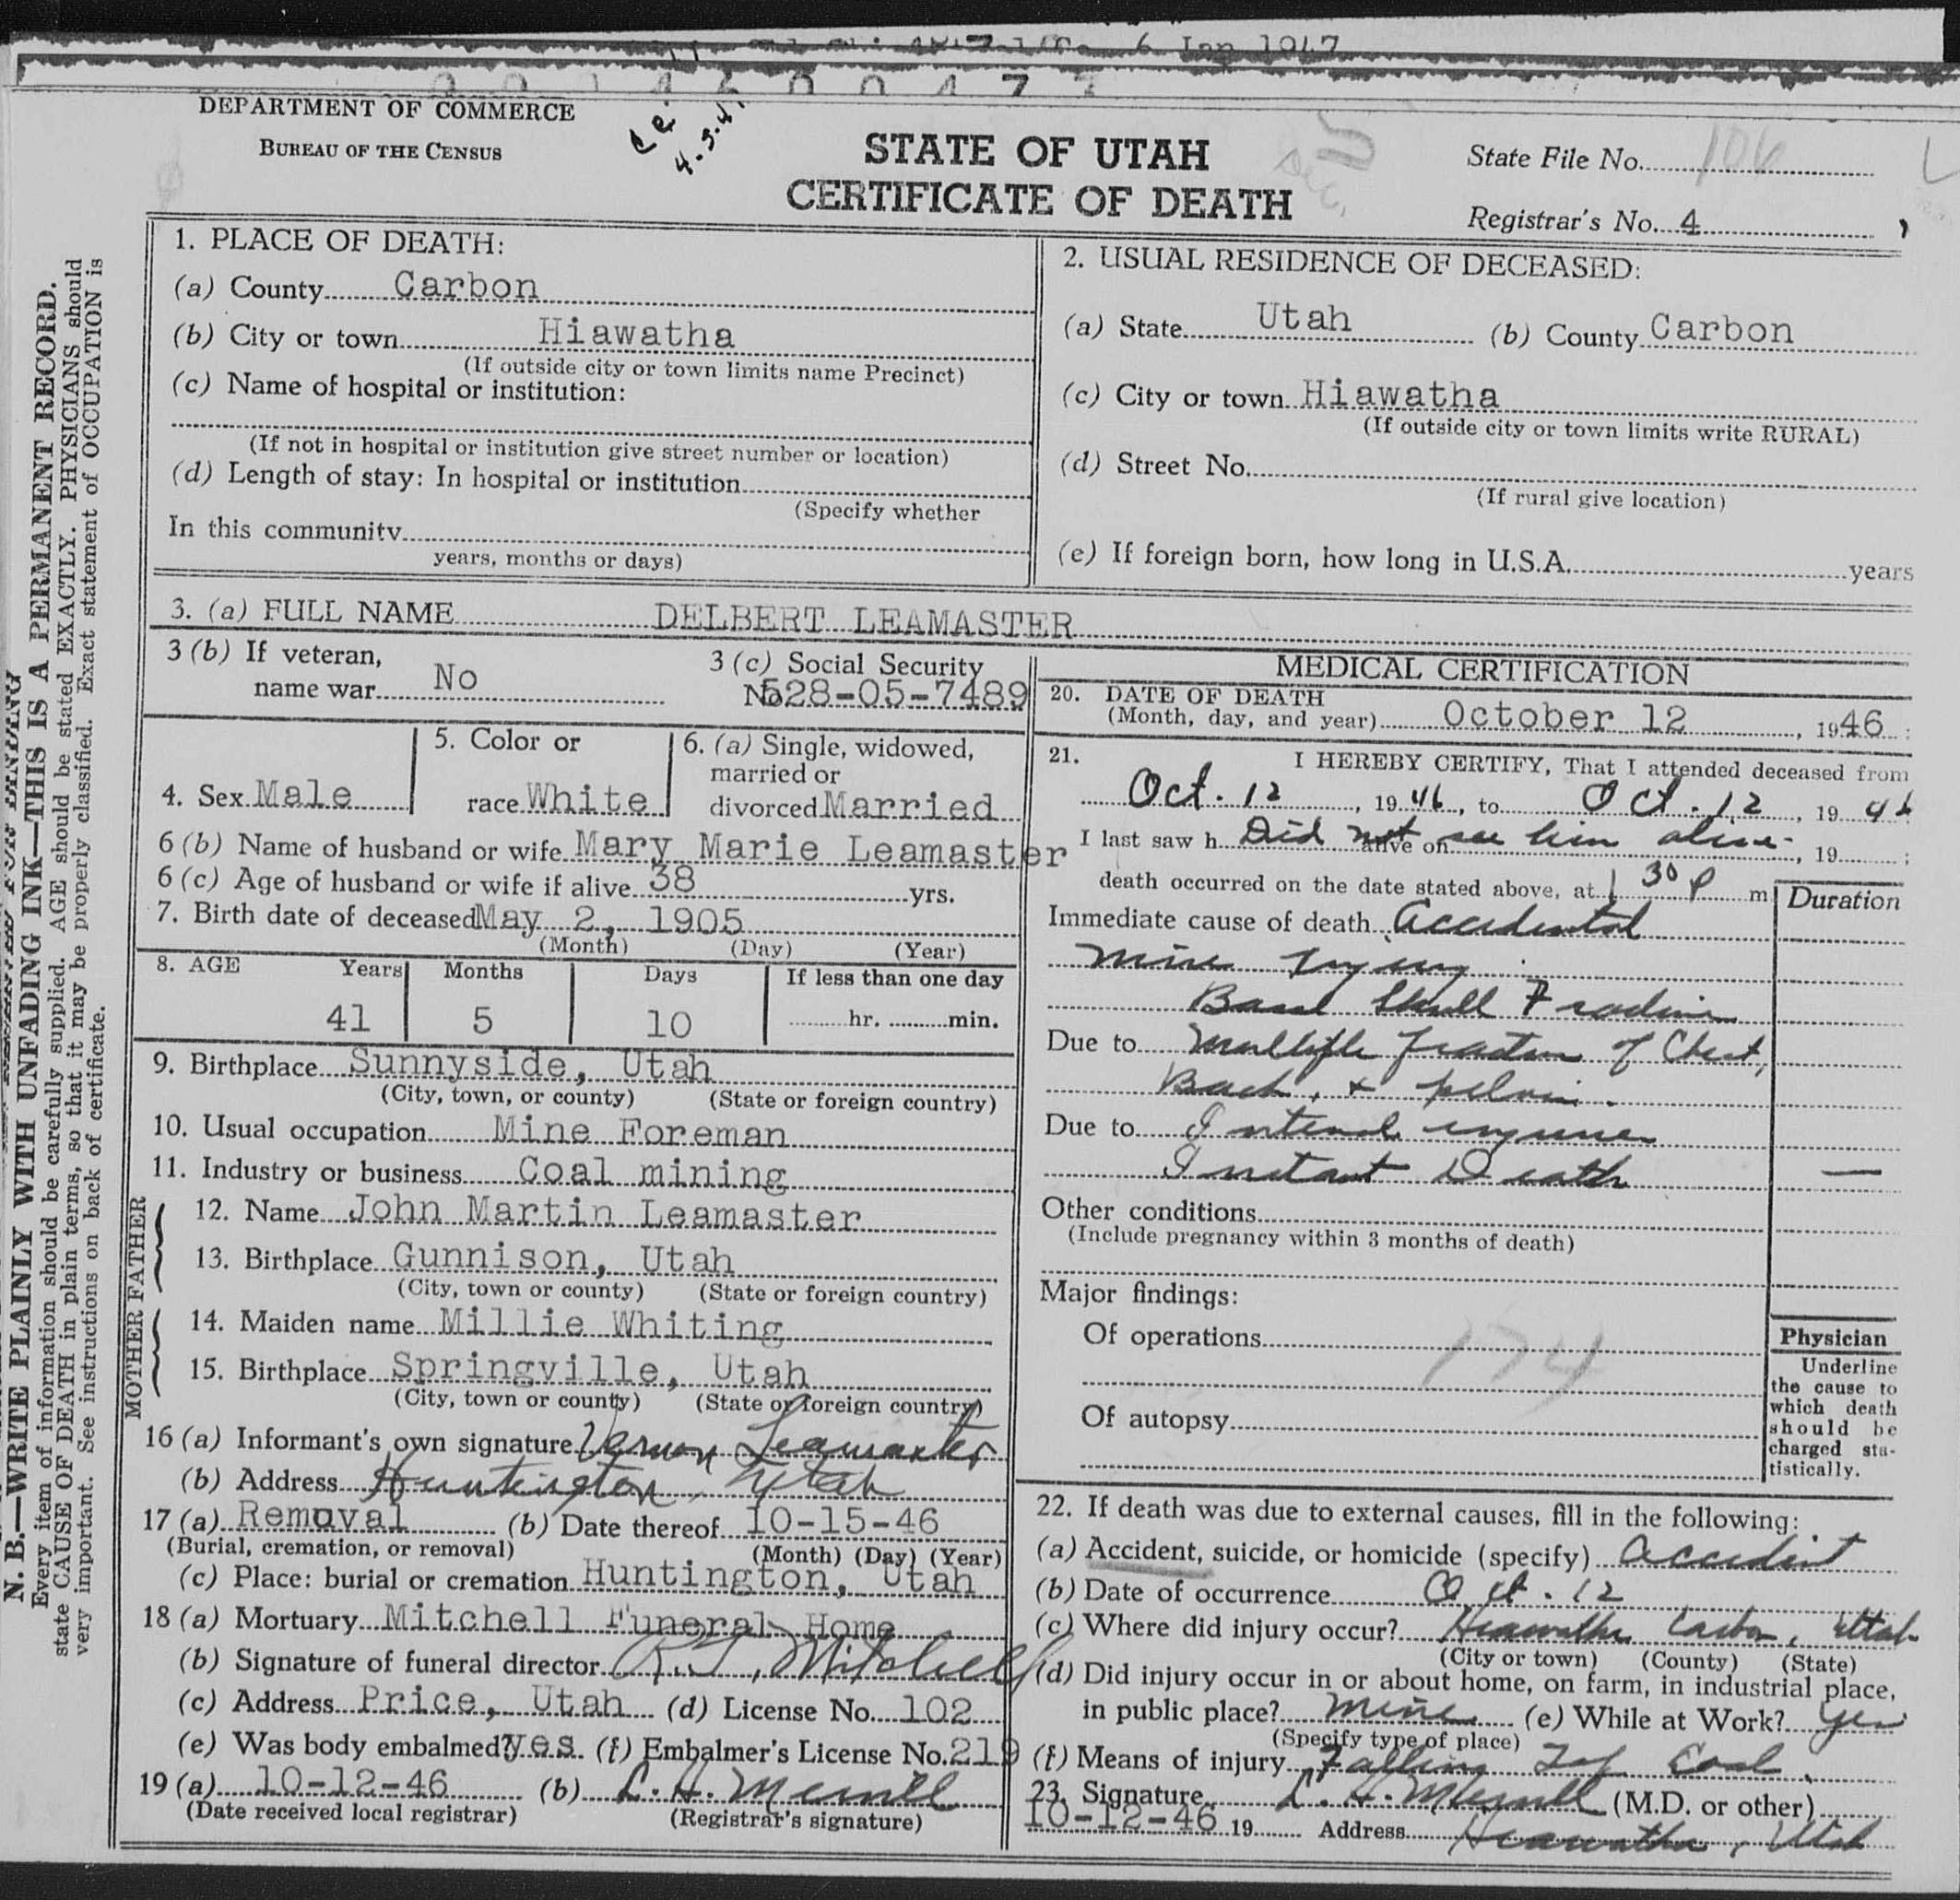 6 Jan 1947
DEPARTMENT OF COMMERCE
BUREAU OF THE CENSUS
STATE OF UTAH
CERTIFICATE OF DEATH
State File No. 106
Registrar's No. 4
1. PLACE OF DEATH:
(a) County Carbon
(b) City or town Hiawatha
(If outside city or town limits name Precinct)
(c) Name of hospital or institution:
(If not in hospital or institution give street number or location)
(d) Length of stay: In hospital or institution
(Specify whether
In this community
years, months or days)
2. USUAL RESIDENCE OF DECEASED:
(a) State Utah (b) County Carbon
(c) City or town Hiawatha
(If outside city or town limits write RURAL)
(d) Street No.
(If rural give location)
(e) If foreign born, how long in U.S.A. years
3. (a) FULL NAME DELBERT LEAMASTER
3 (b) If veteran,
name war No
3 (c) Social Security
No. 528-05-7489
4. Sex Male
5. Color or
race White
6. (a) Single, widowed,
married or
divorced Married
6 (b) Name of husband or wife Mary Marie Leamaster
6 (c) Age of husband or wife if alive 38 yrs.
7. Birth date of deceased May 2, 1905
(Month) (Day) (Year)
8. AGE Years Months Days If less than one day
41 5 10 hr. min.
9. Birthplace Sunnyside, Utah
(City, town, or county) (State or foreign country)
10. Usual occupation Mine Foreman
11. Industry or business Coal mining
FATHER
12. Name John Martin Leamaster
13. Birthplace Gunnison, Utah
(City, town or county) (State or foreign country)
MOTHER
14. Maiden name Millie Whiting
15. Birthplace Springville, Utah
(City, town or county) (State or foreign country)
16 (a) Informant's own signature Vernon Leamaster
(b) Address Huntington, Utah
17 (a) Removal (b) Date thereof 10-15-46
(Burial, cremation, or removal) (Month) (Day) (Year)
(c) Place: burial or cremation Huntington, Utah
18 (a) Mortuary Mitchell Funeral Home
(b) Signature of funeral director R.J. Mitchell
(c) Address Price, Utah (d) License No. 102
(e) Was body embalmed? yes (f) Embalmer's License No. 219
19 (a) 10-12-46 (b) L. H. Merrill
(Date received local registrar) (Registrar's signature)
MEDICAL CERTIFICATION
20. DATE OF DEATH
(Month, day, and year) October 12, 1946
21. I HEREBY CERTIFY, That I attended deceased from
Oct. 12, 1946, to Oct. 12, 1946
I last saw h Did not alive on see him alive, 19 ;
death occurred on the date stated above, at 1 30 P m
Duration
Immediate cause of death Accidental
mine injury
Basal Skull Fracture
Due to Multiple fracture of Chest,
Back, & pelvis.
Due to Internal injuries
Instant Death —
Other conditions
(Include pregnancy within 3 months of death)
Major findings:
Of operations
174
Of autopsy
Physician
Underline
the cause to
which death
should be
charged sta-
tistically.
22. If death was due to external causes, fill in the following:
(a) Accident, suicide, or homicide (specify) Accident
(b) Date of occurrence Oct. 12
(c) Where did injury occur? Hiawatha Carbon, Utah
(City or town) (County) (State)
(d) Did injury occur in or about home, on farm, in industrial place,
in public place? mine (e) While at Work? Yes
(Specify type of place)
(f) Means of injury Falling Top Coal.
23. Signature L. H. Merrill (M.D. or other)
10-12-46 19 Address Hiawatha, Utah
N. B.—WRITE PLAINLY WITH UNFADING INK—THIS IS A PERMANENT RECORD.
Every item of information should be carefully supplied. AGE should be stated EXACTLY. PHYSICIANS should
state CAUSE OF DEATH in plain terms, so that it may be properly classified. Exact statement of OCCUPATION is
very important. See instructions on back of certificate.